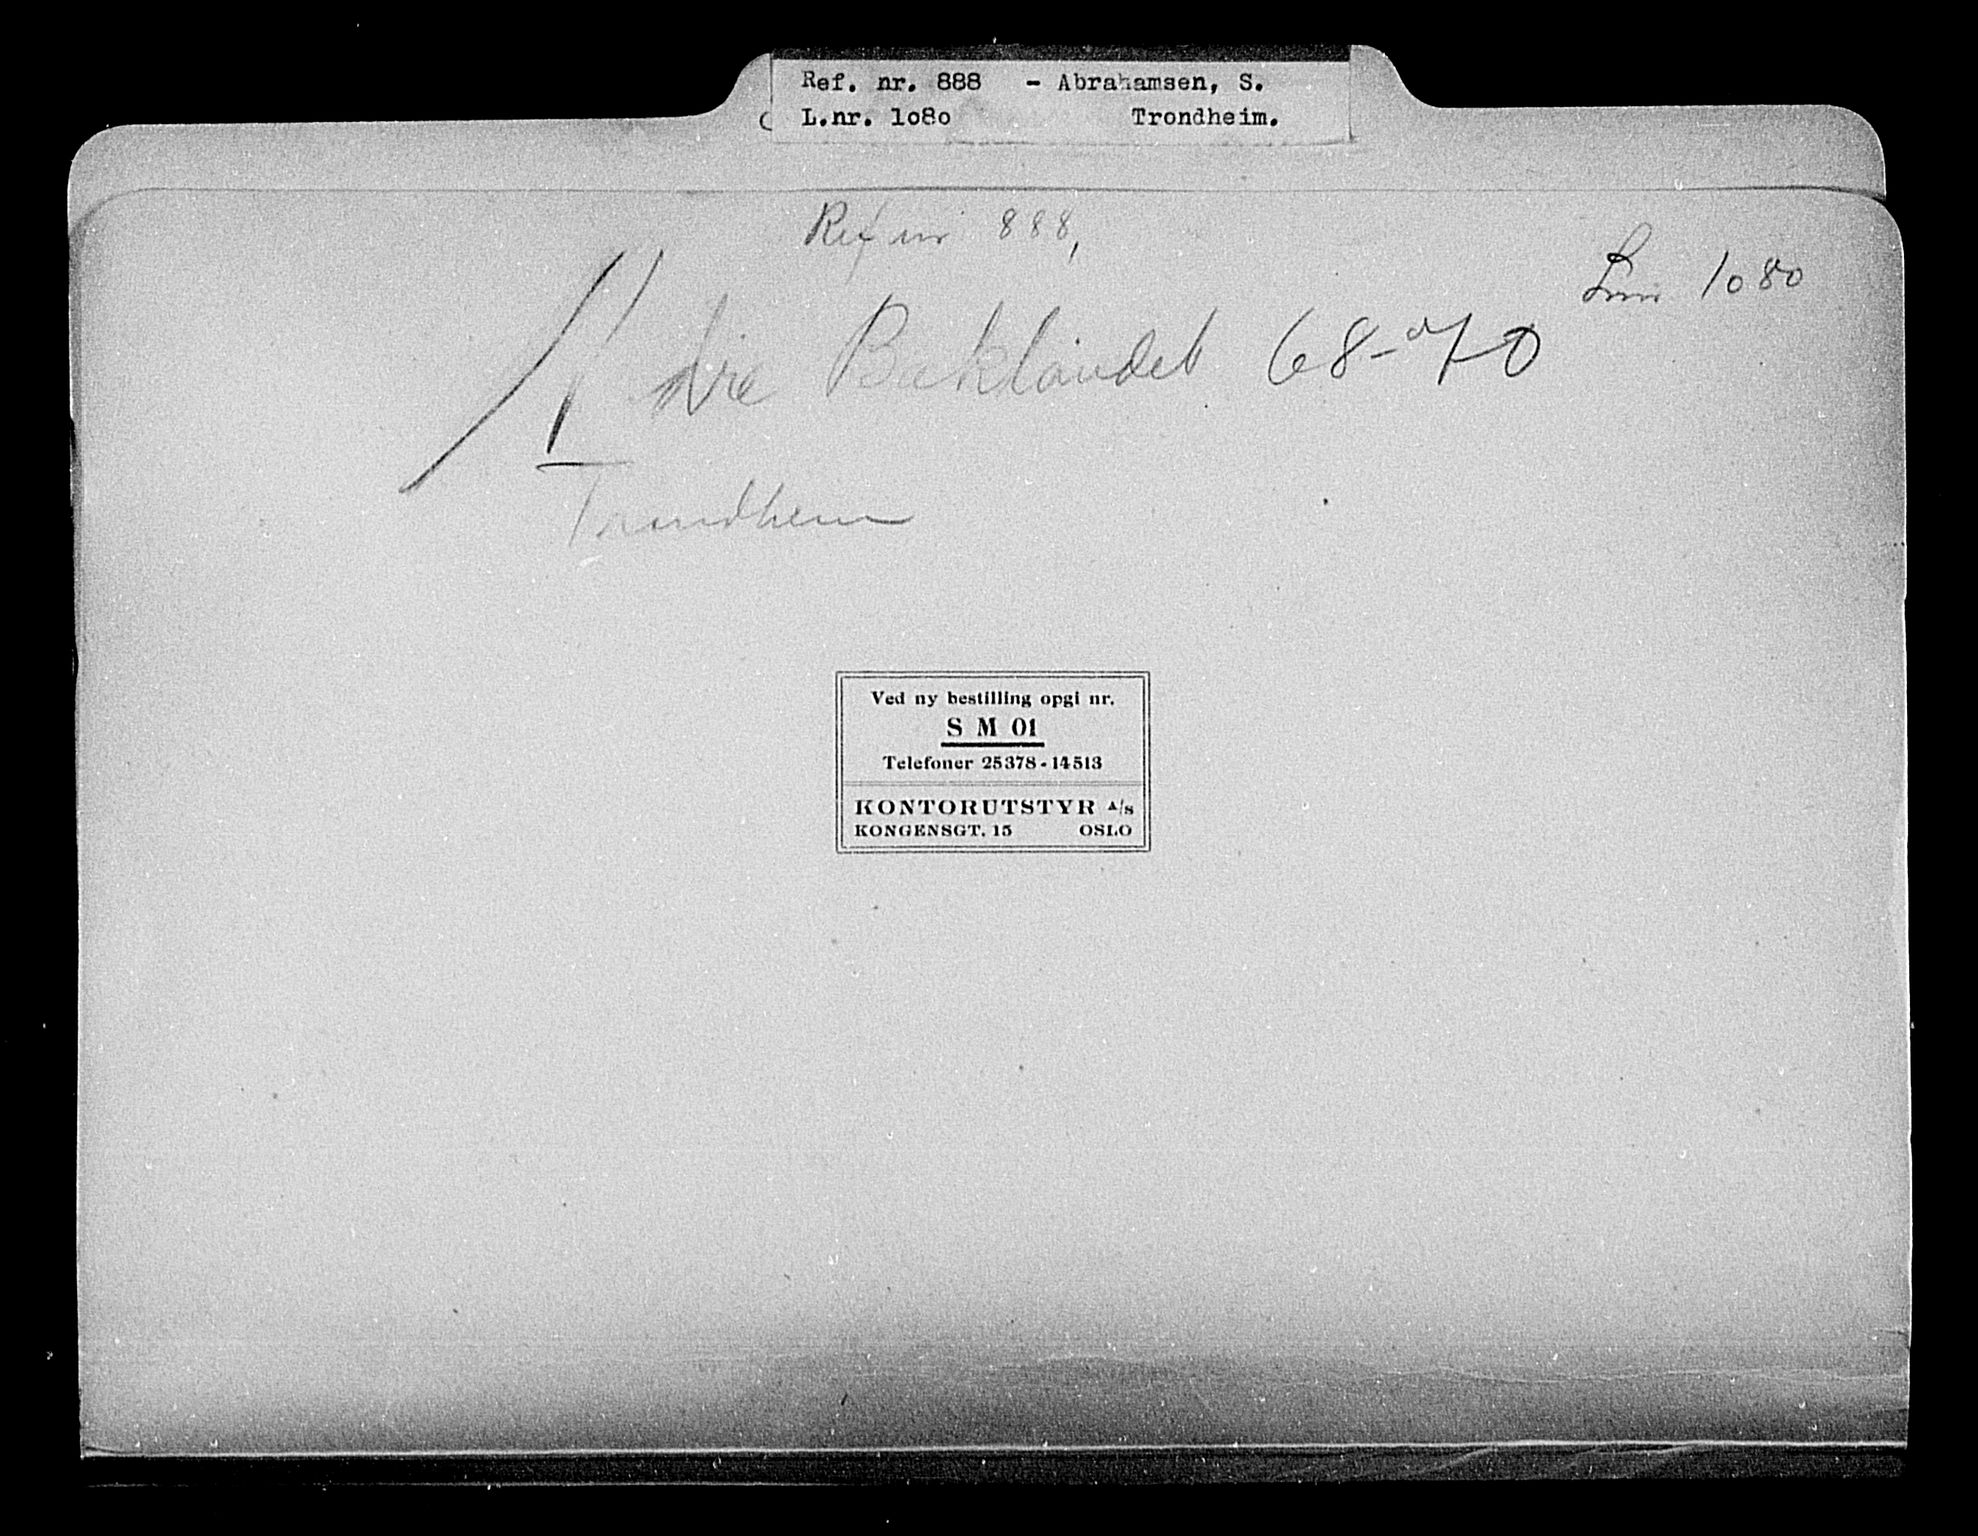 Ref. nr. 888 - Abrahamsen, S.
L.nr. 1o8o Trondheim.
Ref nr 888,
Lnr 1080
Øvre Baklandet 68-70
Trondheim
Ved ny bestilling opgi nr.
S M 01
Telefoner 25378-14513
KONTORUTSTYR A/s
KONGENSGT. 15 OSLO